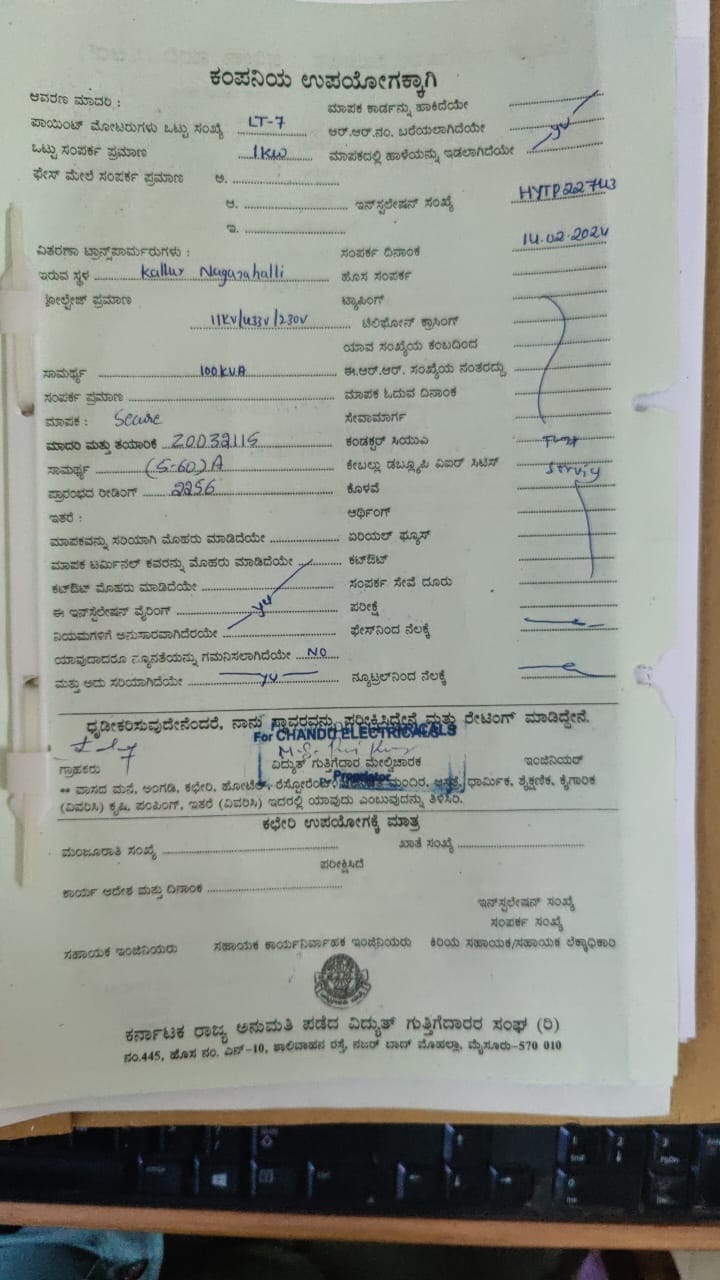 ಕಂಪನಿಯ ಉಪಯೋಗಕ್ಕಾಗಿ
ಆವರಣ ಮಾದರಿ :
ಮಾಪಕ ಕಾರ್ಡನ್ನು ಹಾಕಿದೆಯೇ
ಪಾಯಿಂಟ್ ಮೋಟರುಗಳು ಒಟ್ಟು ಸಂಖ್ಯೆ LT-7
ಆರ್.ಆರ್.ನಂ. ಬರೆಯಲಾಗಿದೆಯೇ
ಒಟ್ಟು ಸಂಪರ್ಕ ಪ್ರಮಾಣ 1KW
ಮಾಪಕದಲ್ಲಿ ಹಾಳೆಯನ್ನು ಇಡಲಾಗಿದೆಯೇ
ಫೇಸ್ ಮೇಲೆ ಸಂಪರ್ಕ ಪ್ರಮಾಣ ಅ.
ಆ.
ಇನ್‌ಸ್ಟಲೇಷನ್ ಸಂಖ್ಯೆ HYTP22743
ಇ.
ವಿತರಣಾ ಟ್ರಾನ್ಸ್‌ಫಾರ್ಮರುಗಳು :
ಸಂಪರ್ಕ ದಿನಾಂಕ 14.02.2024
ಇರುವ ಸ್ಥಳ Kallur Nagarahalli
ಹೊಸ ಸಂಪರ್ಕ
ವೋಲ್ಟೇಜ್ ಪ್ರಮಾಣ
ಟ್ಯಾಪಿಂಗ್
11KV/433V/230V
ಟೆಲಿಫೋನ್ ಕ್ರಾಸಿಂಗ್
ಯಾವ ಸಂಖ್ಯೆಯ ಕಂಬದಿಂದ
ಸಾಮರ್ಥ್ಯ 100KVA
ಈ.ಆರ್.ಆರ್. ಸಂಖ್ಯೆಯ ನಂತರದ್ದು
ಸಂಪರ್ಕ ಪ್ರಮಾಣ
ಮಾಪಕ ಓದುವ ದಿನಾಂಕ
ಮಾಪಕ : Secure
ಸೇವಾಮಾರ್ಗ
ಮಾದರಿ ಮತ್ತು ತಯಾರಿಕೆ 20032115
ಕಂಡಕ್ಟರ್ ಸಿಯುಎ
ಸಾಮರ್ಥ್ಯ (5-60)A
ಕೇಬಲ್ಲು ಡಬ್ಲ್ಯೂಪಿ ವಿಐರ್ ಸಿಟಿಸ್
ಪ್ರಾರಂಭದ ರೀಡಿಂಗ್ 2256
ಕೊಳವೆ
ಇತರೆ :
ಆರ್ಥಿಂಗ್
ಮಾಪಕವನ್ನು ಸರಿಯಾಗಿ ಮೊಹರು ಮಾಡಿದೆಯೇ
ಏರಿಯಲ್ ಫ್ಯೂಸ್
ಮಾಪಕ ಟರ್ಮಿನಲ್ ಕವರನ್ನು ಮೊಹರು ಮಾಡಿದೆಯೇ
ಕಟ್‌ಔಟ್
ಕಟ್‌ಔಟ್ ಮೊಹರು ಮಾಡಿದೆಯೇ
ಸಂಪರ್ಕ ಸೇವೆ ದೂರು
ಈ ಇನ್‌ಸ್ಟಲೇಷನ್ ವೈರಿಂಗ್
ಪರೀಕ್ಷೆ
ನಿಯಮಗಳಿಗೆ ಅನುಸಾರವಾಗಿದೆಯೇ
ಫೇಸ್‌ನಿಂದ ನೆಲಕ್ಕೆ
ಯಾವುದಾದರೂ ನ್ಯೂನತೆಯನ್ನು ಗಮನಿಸಲಾಗಿದೆಯೇ NO
ಮತ್ತು ಅದು ಸರಿಯಾಗಿದೆಯೇ
ನ್ಯೂಟ್ರಲ್‌ನಿಂದ ನೆಲಕ್ಕೆ
ಧೃಡೀಕರಿಸುವುದೇನೆಂದರೆ, ನಾನು ಸ್ಥಾವರವನ್ನು ಪರೀಕ್ಷಿಸಿದ್ದೇನೆ ಮತ್ತು ರೇಟಿಂಗ್ ಮಾಡಿದ್ದೇನೆ.
For CHANDU ELECTRICALS
ಗ್ರಾಹಕರು
ವಿದ್ಯುತ್ ಗುತ್ತಿಗೆದಾರ ಮೇಲ್ವಿಚಾರಕ
ಇಂಜಿನಿಯರ್
Proprietor
** ವಾಸದ ಮನೆ, ಅಂಗಡಿ, ಕಛೇರಿ, ಹೋಟೆಲ್, ರೆಸ್ಟೋರೆಂಟ್, ಮಂದಿರ, ಆಸ್ಪತ್ರೆ, ಧಾರ್ಮಿಕ, ಶೈಕ್ಷಣಿಕ, ಕೈಗಾರಿಕ
(ವಿವರಿಸಿ) ಕೃಷಿ, ಪಂಪಿಂಗ್, ಇತರೆ (ವಿವರಿಸಿ) ಇದರಲ್ಲಿ ಯಾವುದು ಎಂಬುವುದನ್ನು ತಿಳಿಸಿರಿ.
ಕಛೇರಿ ಉಪಯೋಗಕ್ಕೆ ಮಾತ್ರ
ಮಂಜೂರಾತಿ ಸಂಖ್ಯೆ
ಖಾತೆ ಸಂಖ್ಯೆ
ಪರೀಕ್ಷಿಸಿದೆ
ಕಾರ್ಯ ಆದೇಶ ಮತ್ತು ದಿನಾಂಕ
ಇನ್‌ಸ್ಟಲೇಷನ್ ಸಂಖ್ಯೆ
ಸಂಪರ್ಕ ಸಂಖ್ಯೆ
ಸಹಾಯಕ ಇಂಜಿನಿಯರು
ಸಹಾಯಕ ಕಾರ್ಯನಿರ್ವಾಹಕ ಇಂಜಿನಿಯರು
ಕಿರಿಯ ಸಹಾಯಕ/ಸಹಾಯಕ ಲೆಕ್ಕಾಧಿಕಾರಿ
ಕರ್ನಾಟಕ ರಾಜ್ಯ ಅನುಮತಿ ಪಡೆದ ವಿದ್ಯುತ್ ಗುತ್ತಿಗೆದಾರರ ಸಂಘ (ರಿ)
ನಂ.445, ಹೊಸ ನಂ. ಎನ್-10, ಶಾಲಿವಾಹನ ರಸ್ತೆ, ನಜರ್ ಬಾದ್ ಮೊಹಲ್ಲಾ, ಮೈಸೂರು-570 010